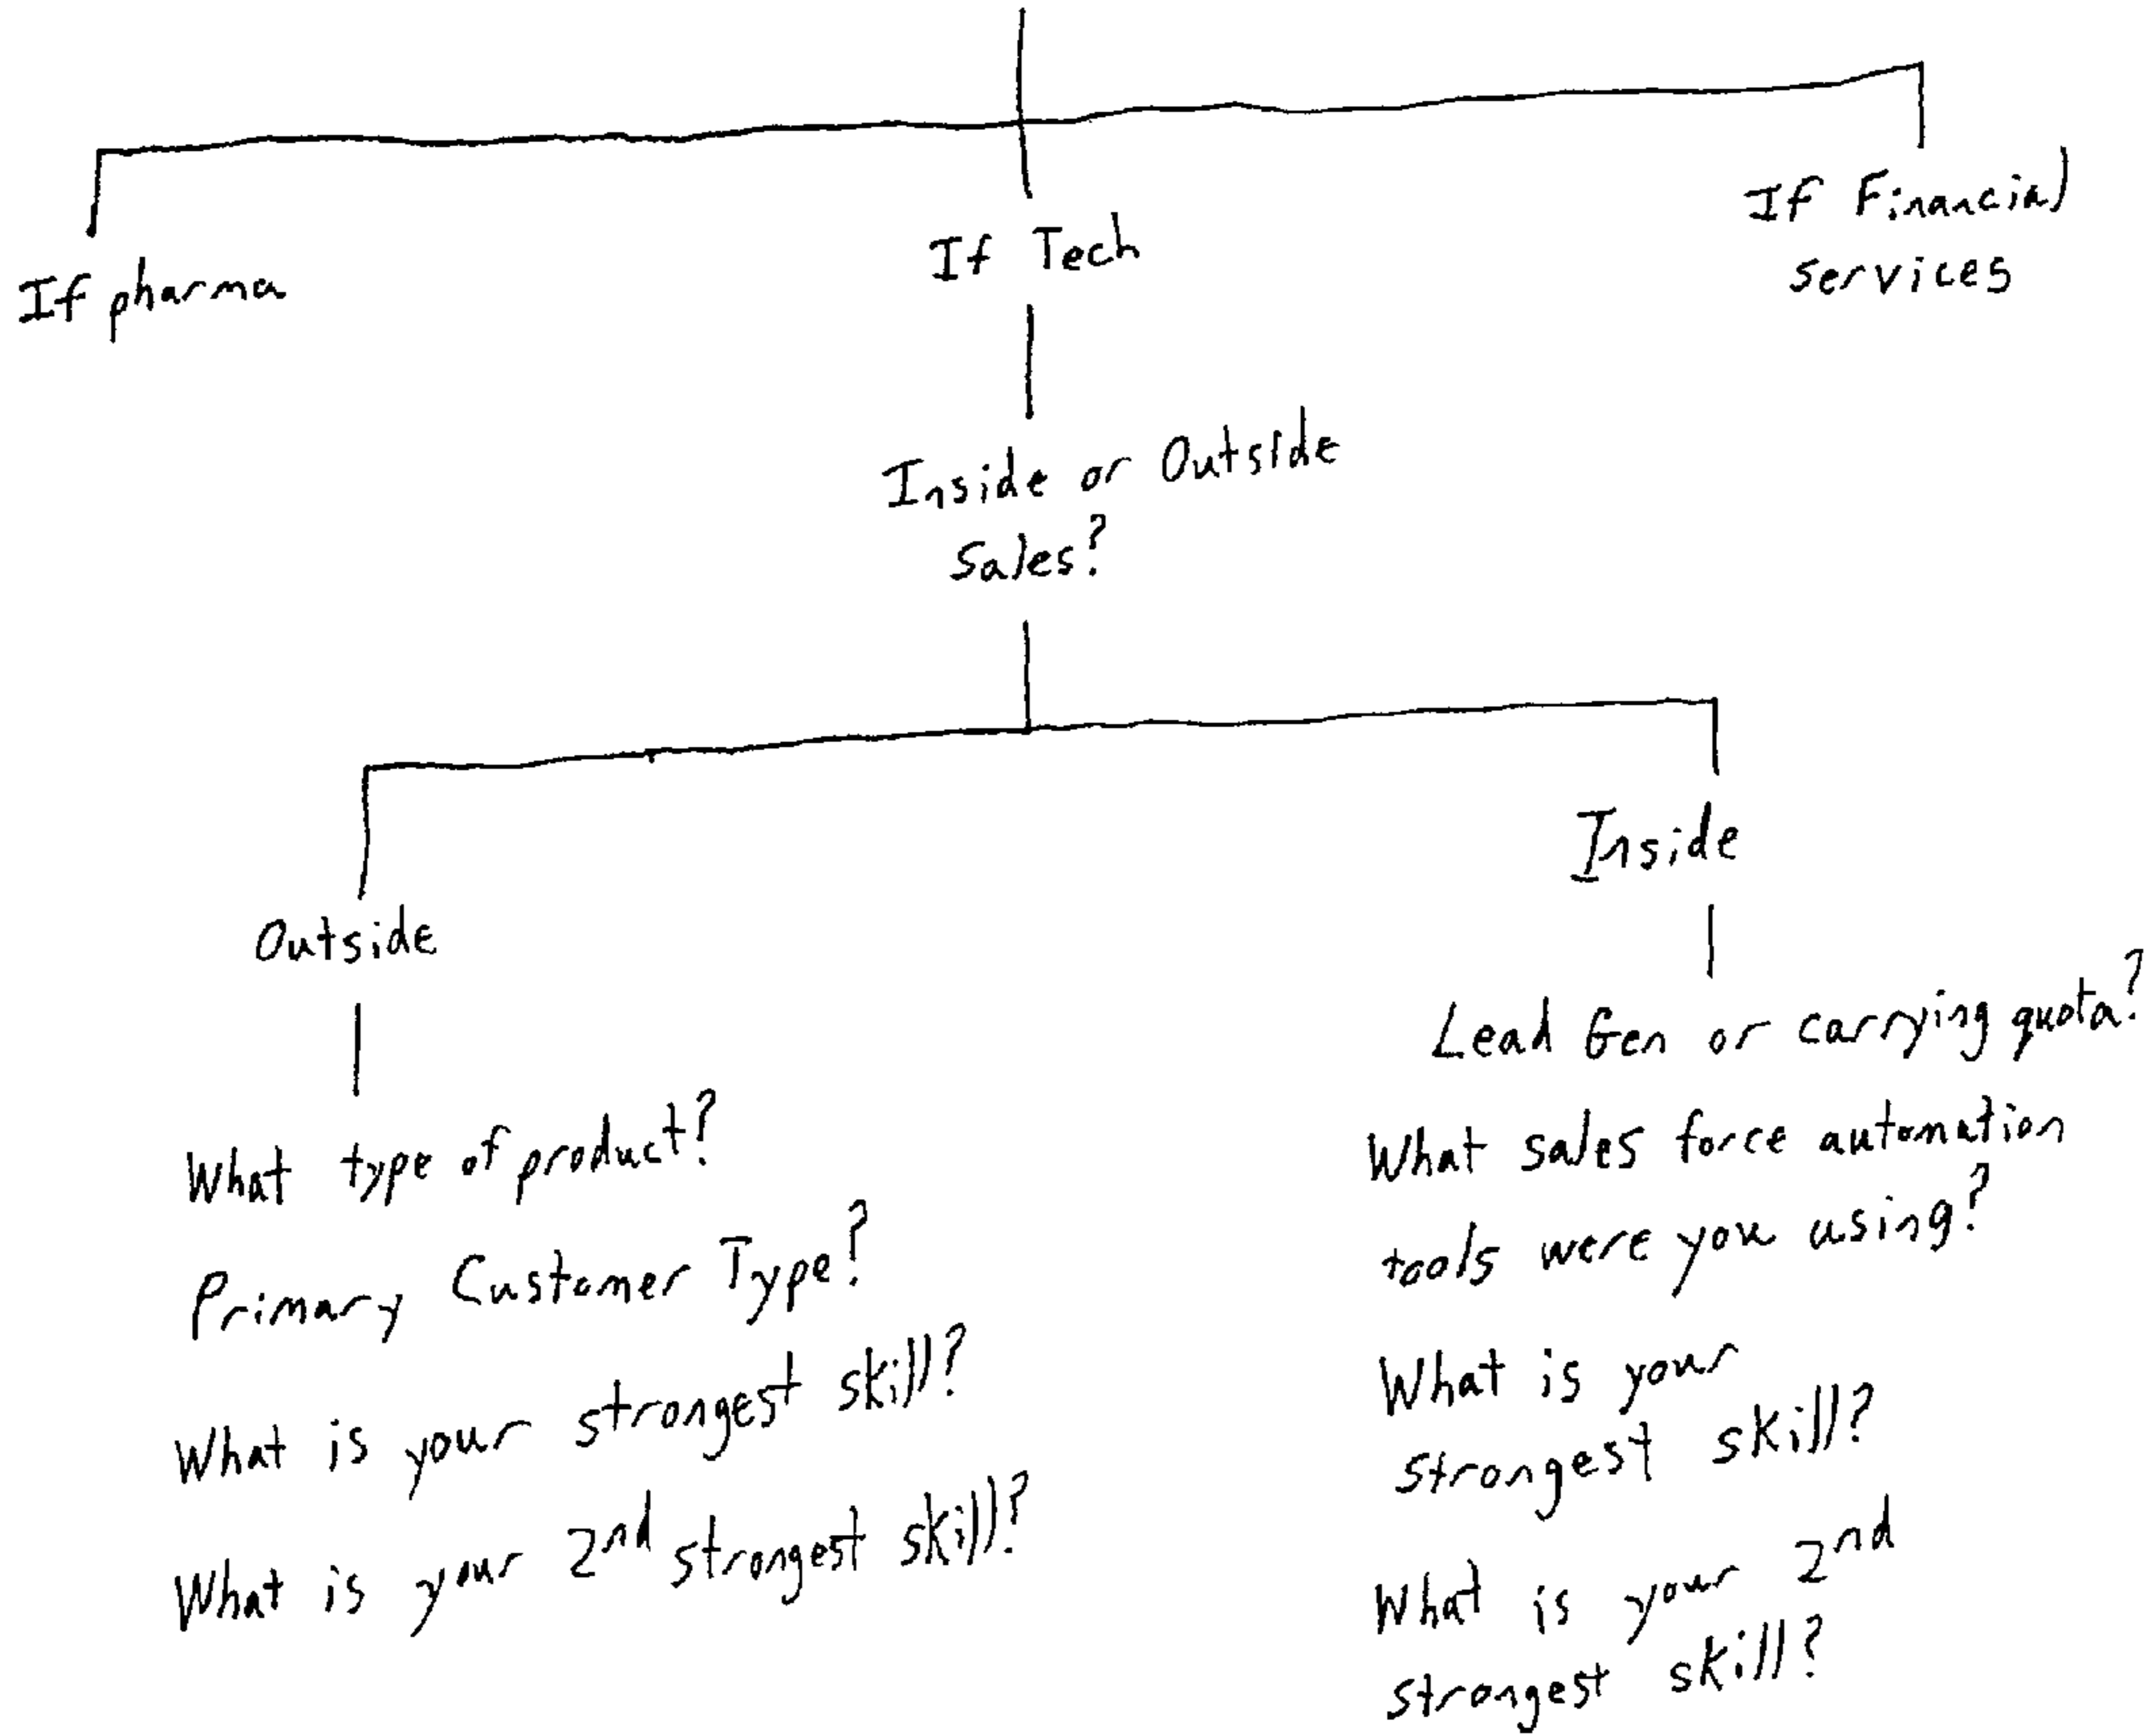 If pharma
If Tech
If Financial
services
Inside or Outside
Sales?
Outside
What type of product?
Primary Customer Type?
What is your strongest skill?
What is your 2nd strongest skill?
Inside
Lead Gen or carrying quota?
What sales force automation
tools were you using?
What is your
strongest skill?
What is your 2nd
strongest skill?